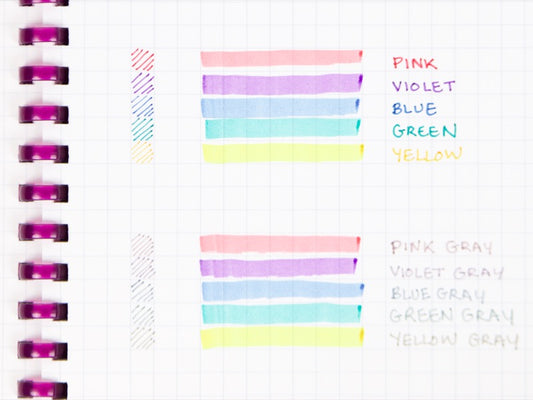 PINK
VIOLET
BLUE
GREEN
YELLOW
PINK GRAY
VIOLET GRAY
BLUE GRAY
GREEN GRAY
YELLOW GRAY